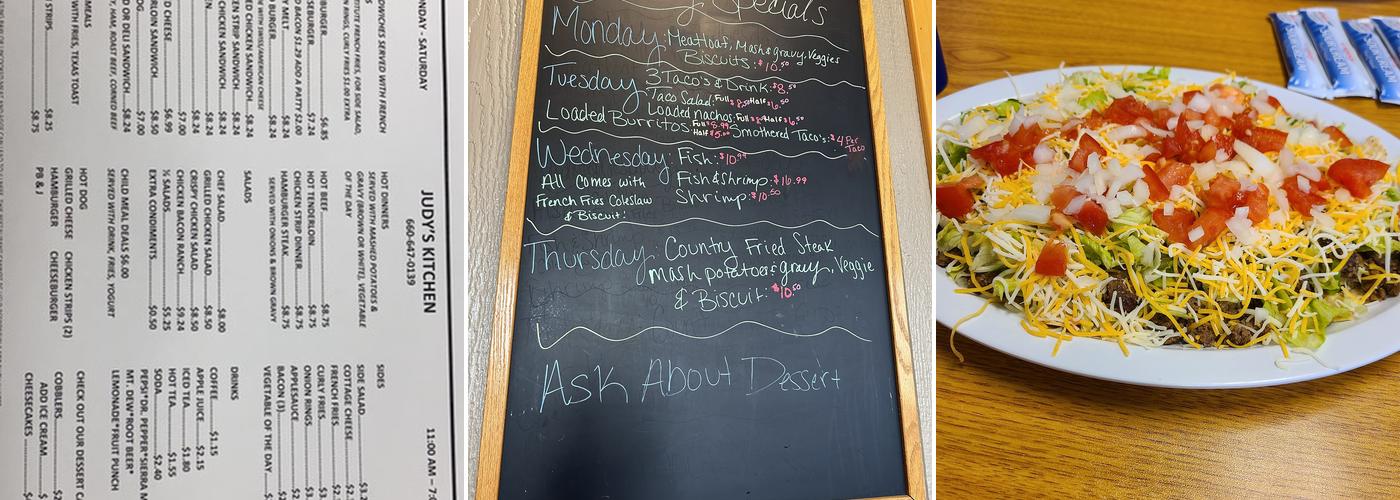 MONDAY - SATURDAY
JUDY'S KITCHEN
660-647-0139
11:00 AM – 7:
SANDWICHES SERVED WITH FRENCH
STITUTE FRENCH FRIES, FOR SIDE SALAD,
ON RINGS, CURLY FRIES $1.00 EXTRA
BURGER $6.85
SEBURGER $7.24
BACON $1.29 ADD A PATTY $2.00
Y MELT $8.24
BURGER $8.24
WITH SWISS/AMERICAN CHEESE
ED CHICKEN SANDWICH $8.24
CHICKEN STRIP SANDWICH $8.24
CHICKEN SANDWICH $8.24
$7.00
D CHEESE $6.99
LOIN SANDWICH $8.99
DOG $7.00
D OR DELI SANDWICH $8.24
HAM, ROAST BEEF, CORNED BEEF
MEALS
WITH FRIES, TEXAS TOAST
STRIPS $8.25
$8.75
HOT DINNERS
SERVED WITH MASHED POTATOES &
GRAVY (BROWN OR WHITE), VEGETABLE
OF THE DAY
HOT BEEF $8.75
HOT TENDERLOIN $8.75
CHICKEN STRIP DINNER $8.75
HAMBURGER STEAK $8.75
SERVED WITH ONIONS & BROWN GRAVY
SALADS
CHEF SALAD $8.00
GRILLED CHICKEN SALAD $8.50
CRISPY CHICKEN SALAD $8.50
CHICKEN BACON RANCH $9.24
½ SALADS $5.25
EXTRA CONDIMENTS $0.50
CHILD MEAL DEALS $6.00
SERVED WITH DRINK, FRIES, YOGURT
HOT DOG
GRILLED CHEESE CHICKEN STRIPS (2)
HAMBURGER CHEESEBURGER
PB & J
SIDES
SIDE SALAD $3.2
COTTAGE CHEESE $2.
FRENCH FRIES $2.
CURLY FRIES $3.
ONION RINGS $3.
APPLESAUCE $2
BACON (3) $2
VEGETABLE OF THE DAY $
DRINKS
COFFEE $1.15
APPLE JUICE $2.15
ICED TEA $1.80
HOT TEA $1.55
SODA $2.40
PEPSI*DR. PEPPER*SIERRA M
MT. DEW*ROOT BEER*
LEMONADE*FRUIT PUNCH
CHECK OUT OUR DESSERT CA
COBBLERS $2
ADD ICE CREAM $
CHEESECAKES $4
Specials
Monday: Meatloaf, Mash & gravy, Veggies
Biscuits: $10.50
Tuesday: 3 Taco's & Drink: $8.50
Taco Salad: Full $8.50 Half $6.50
Loaded nachos: Full $8.50 Half $6.50
Loaded Burritos Full $8.99 Half $5.00 Smothered Taco's: $4 Per Taco
Wednesday: Fish: $10.99
All Comes with Fish & Shrimp: $16.99
French Fries Coleslaw Shrimp: $10.50
& Biscuit!
Thursday: Country Fried Steak
mash potatoes & gravy, Veggie
& Biscuit: $10.50
Ask About Dessert